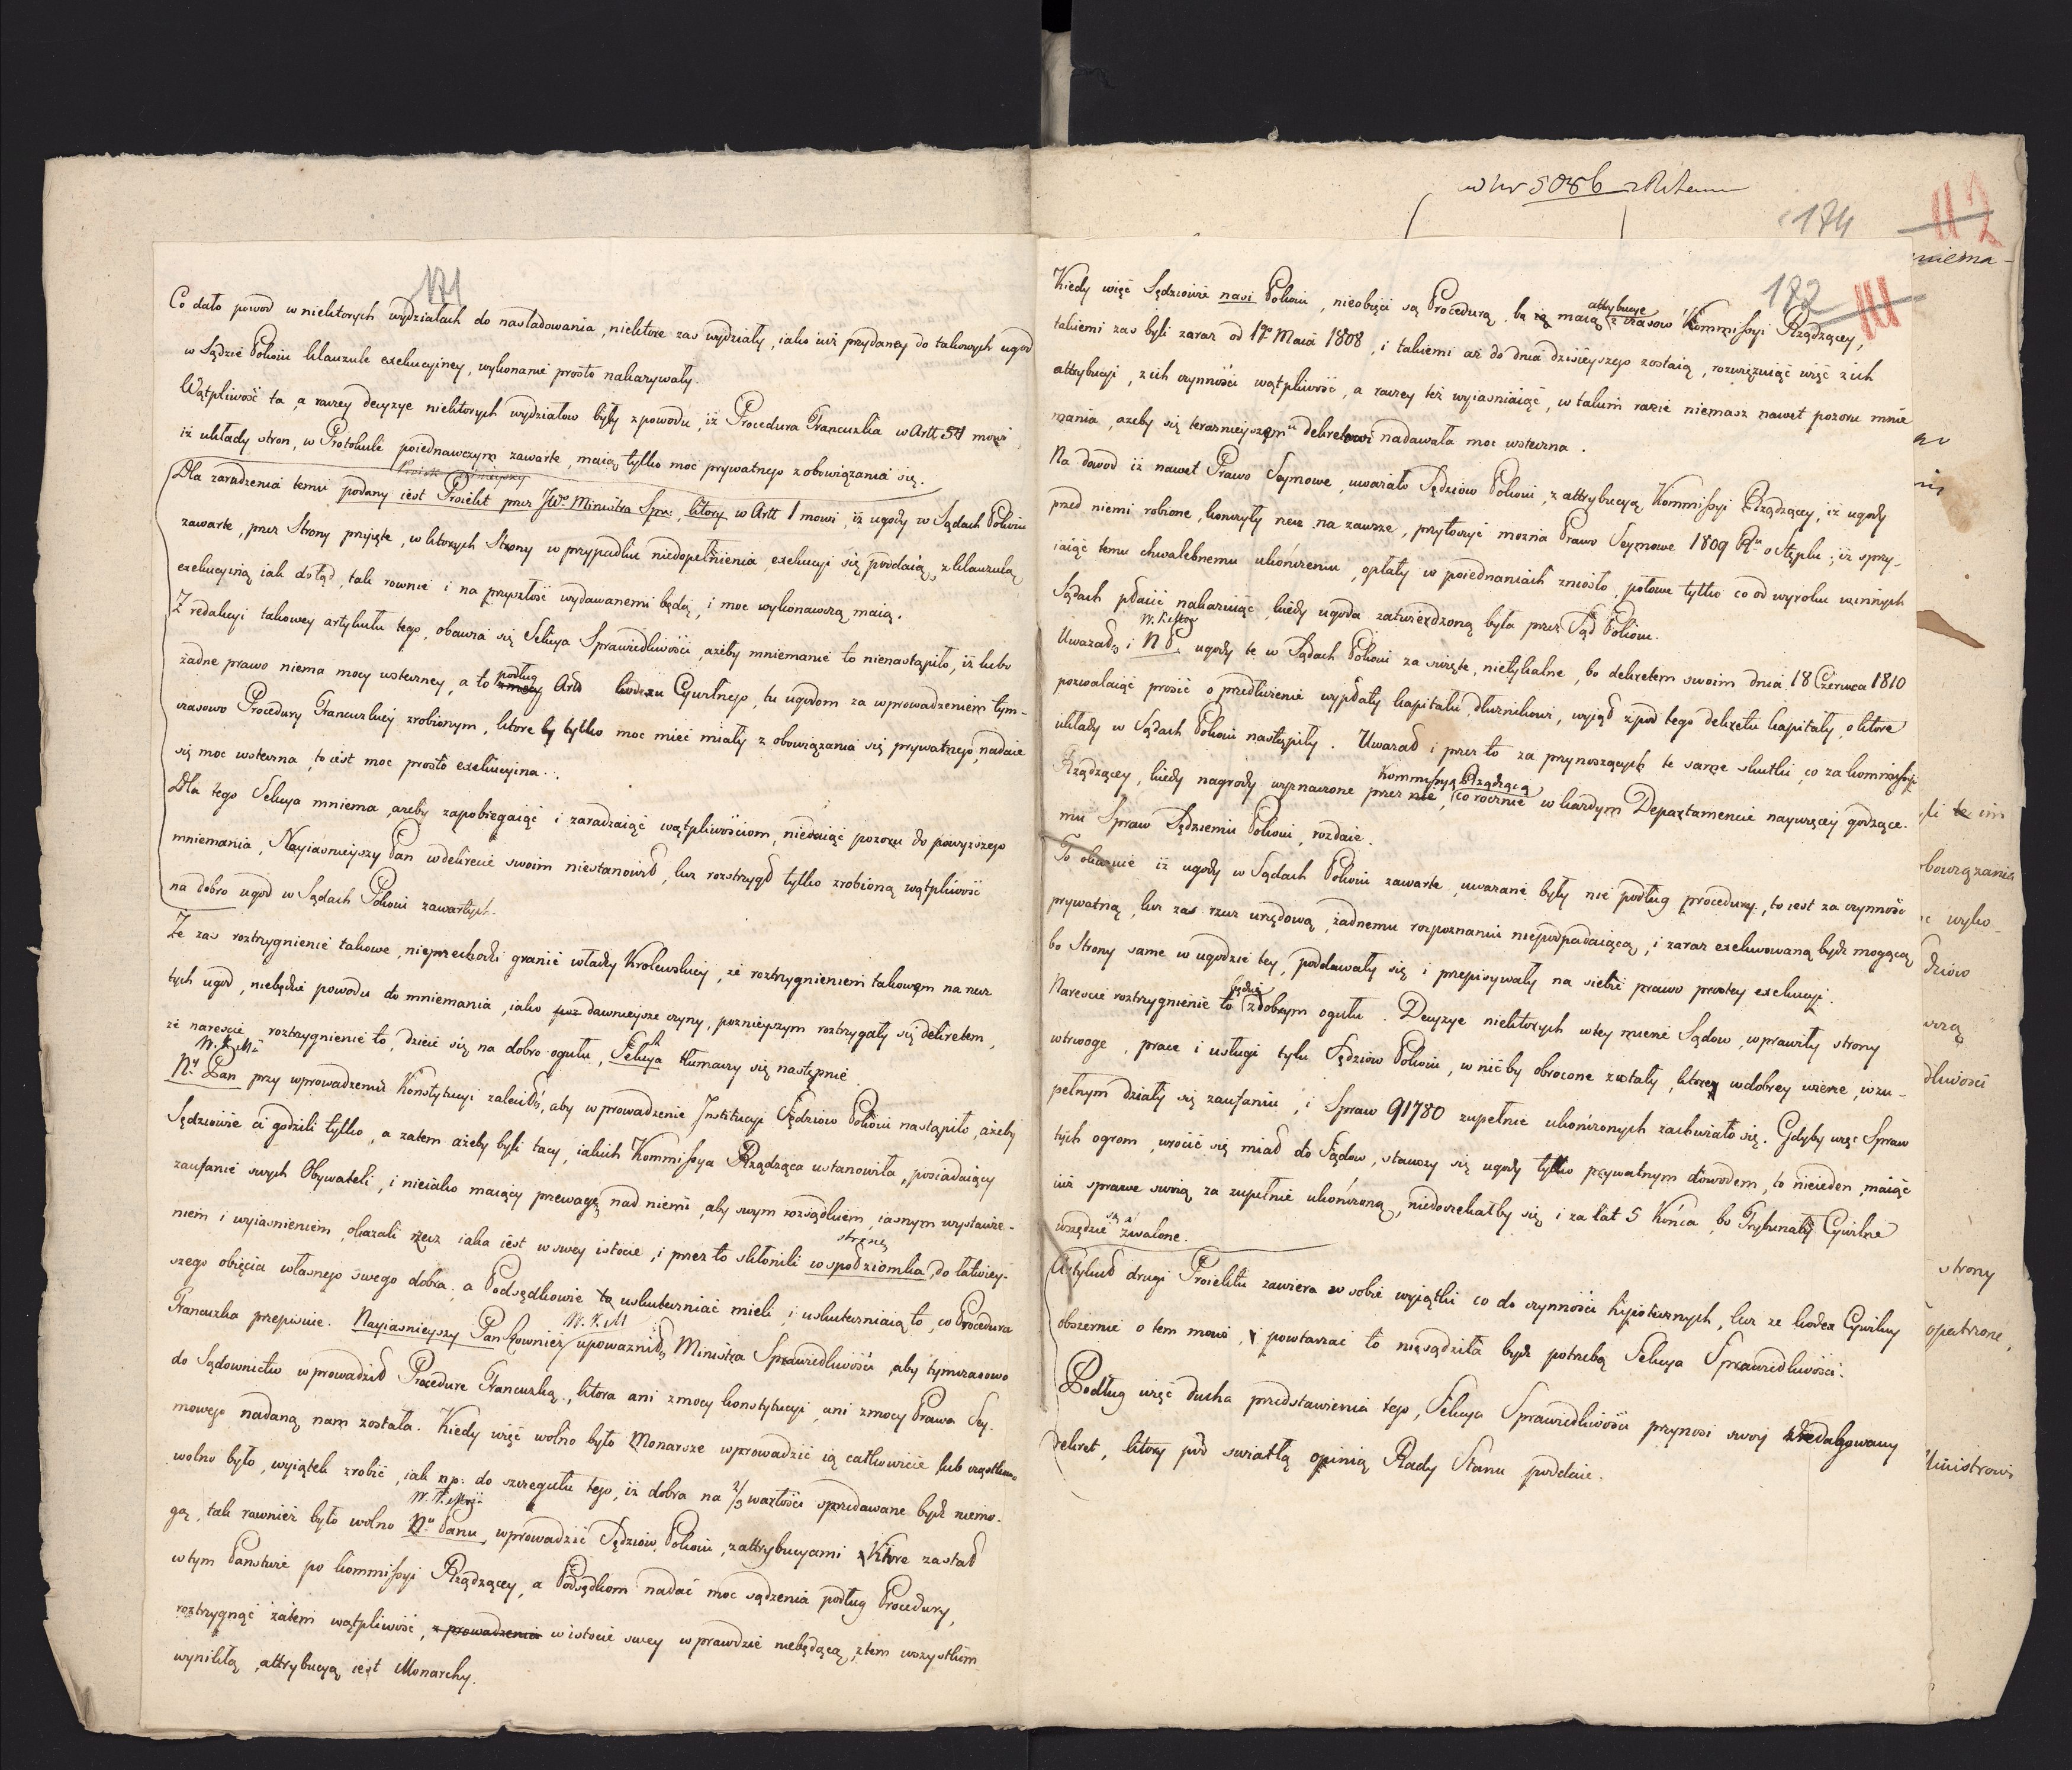 171
Co dało powod w niektorych wydziałach do nasladowania, niektore zas wydziały, iako iuż przydaney do takowych ugod
w Sądzie Pokoiu klauzule exekucyiney, wykonanie prosto nakazywały.
Wątpliwość ta, a raczey decyzye niektorych wydziałow były z powodu, iż Procedura Francuzka w Artt 54 mowi,
iż układy stron, w Protokule poiednawczym zawarte, maią tylko moc prywatnego zobowiązania się.
Dla zaradzenia temu podany iest Proiekt przez JWo Ministra Spr:, ktory w Artt 1 mowi, iż ugody w Sądach Pokoiu
zawarte, przez Strony przyięte, w ktorych Strony w przypadku niedopełnienia, exekucyi się poddaią, z klauzulą
exekucyiną iak dotąd, tak rownie i na przyszłość wydawanemi będą, i moc wykonawczą maią.
Z redakcyi takowey artykułu tego, obawia się Sekcya Sprawiedliwości, ażeby mniemanie to nienastąpiło, iż lubo
żadne prawo niema mocy wsteczney, a to podług Artt kodexu Cywilnego, tu ugodom za wprowadzeniem tym-
czasowo Procedury Francuzkiey zrobionym, ktore by tylko moc mieć miały z obowiązania się prywatnego, nadaie
się moc wsteczna, to iest moc prosto exekucyina.
Dla tego Sekcya mniema, ażeby zapobiegaiąc i zaradzaiąc wątpliwościom, niedaiąc pozoru do powyższego
mniemania, Nayiasnieyszy Pan w dekrecie swoim niestanowił, lecz rozstrzygł tylko zrobioną wątpliwość
na dobro ugod w Sądach Pokoiu zawartych.
Że zas roztrzygnienie takowe, nieprzechodzi granic władzy Krolewskiey, że roztrzygnieniem takowem na rzecz
tych ugod, niebędzie powodu do mniemania, iako dawnieysze czyny, poznieyszym roztrzygały się dekretem,
że nareszcie roztrzygnienie to, dzieie się na dobro ogułu, Sekcya tłumaczy się następnie
W. K. Mć
Ny Pan przy wprowadzeniu Konstytucyi zalecił, aby wprowadzenie Institucyi Sędziow Pokoiu nastąpiło, ażeby
Sędziowie ci godzili tylko, a zatem ażeby byli tacy, iakich Kommissya Rządząca ustanowiła, posiadaiący
zaufanie swych Obywateli, i nieiako maiący przewagę nad niemi, aby swym rozsądkiem, iasnym wystawie-
niem i wyiasnieniem, okazali rzecz iaka iest w swey istocie, i przez to skłonili wspołziomka stronę, do łatwiey-
szego obięcia własnego swego dobra, a Podsędkowie to uskuteczniać mieli, i uskuteczniaią to, co Procedura
Francuzka przepisuie. Nayiasnieyszy Pan rownież W. K. M upoważnił Ministra Sprawiedliwości aby tymczasowo
do Sądownictw wprowadził Procedure Francuzką, ktora ani z mocy konstytucyi, ani z mocy Prawa Sey-
mowego nadaną nam została. Kiedy więc wolno było Monarsze wprowadzić ią całkowicie lub cząstkowo
wolno było, wyiątek zrobić, iak np: do szczegułu tego, iż dobra na 2/3 wartości sprzedawane bydź niemo-
gą, tak rownież było wolno Nu Panu, wprowadzić Sędziow Pokoiu, z attrybucyami Ktore zastał
w tym Panstwie po kommissyi Rządzącey, a Podsędkom nadać moc sądzenia podług Procedury,
roztrzygnąć zatem wątpliwość, z prowadzenia w istocie swey wprawdzie niebędącą, z tem wszystkim
wynikłą, attrybucyą iest Monarchy.
174
112
182
111
Kiedy więc Sędziowie nasi Pokoiu, nieobięci są Procedurą, bo maią attrybucye z czasow Kommissyi Rządzącey,
takiemi zas byli zaraz od 1go Maia 1808, i takiemi aż do dnia dzisieyszego zostaią, rozwięzuiąc więc z ich
attrybucyi, z ich czynności wątpliwość, a raczey też wyiasniaiąc, w takim razie niemasz nawet pozoru mnie
mania, ażeby się terazniejszemu dekretowi nadawała moc wsteczna.
Na dowod iż nawet Prawo Seymowe, uwazało Sędziow Pokoiu, z attrybucyą Kommissyi Rządzącey, iż ugody
przed niemi robione, konczyły rzecz na zawsze, przytoczyć można Prawo Seymowe 1809 Ru o Stęplu, iż sprzy-
iaiąc temu chwalebnemu ukończeniu, opłaty w poiednaniach zniosło, połowe tylko co od wyroku w innych
Sądach płacić nakazuiąc, kiedy ugoda zatwierdzoną była przez Sąd Pokoiu.
Uwazał i N P. ugody te w Sądach Pokoiu za święte, nietykalne, bo dekretem swoim dnia 18 Czerwca 1810
pozwalaiąc prosić o przedłużenie wypłaty kapitału dłużnikowi, wyiął z pod tego dekretu kapitały, o ktore
układy w Sądach Pokoiu nastąpiły. Uwazał i przez to za przynoszących te same skutki, co za kommissyi
Rządzącey, kiedy nagrody wyznaczone przez Kommissyą Rządzącą, co rocznie w każdym Departamencie naywięcey godzące-
mu Spraw Sędziemu Pokoiu, rozdaie.
To okazuie iż ugody w Sądach Pokoiu zawarte, uwazane były nie podług procedury, to iest za czynność
prywatną, lecz zas rzecz urzędową, żadnemu rozpoznaniu niepodpadaiącą, i zaraz exekwowaną bydź mogącą
bo Strony same w ugodzie tey, poddawały się i przepisywały na siebie prawo prostey exekucyi.
Nareszcie roztrzygnienie to będzie z dobrym ogułu. Decyzye niektorych w tey mierze Sądow, wprawiły strony
w trwoge, prace i usługi tylu Sędziow Pokoiu, w nic by obrocone zostały, ktore w dobrey wierze, w zu-
pełnym działy się zaufaniu, i Spraw 91780 zupełnie ukończonych zachwiało się. Gdyby więc Spraw
tych ogrom, wrocić się miał do Sądow, stawszy się ugody tylko prywatnym dowodem, to nieieden, maiąc
iuż sprawe swoią za zupełnie ukończoną, niedoczekałby się i za lat 5 końca, bo Trybunały Cywilne
wszędzie są zwalone.
Artykuł drugi Proiektu zawiera w sobie wyiątki co do czynności hypotecznych, lecz ze kodex Cywilny
obszernie o tem mowi, i powtarzać to niesądziła bydź potrzebą Sekcya Sprawiedliwości.
Podług więc ducha przedstawienia tego, Sekcya Sprawiedliwości przynosi swoy zredagowany
dekret, ktory pod swiatłą opinią Rady Stanu poddaie.